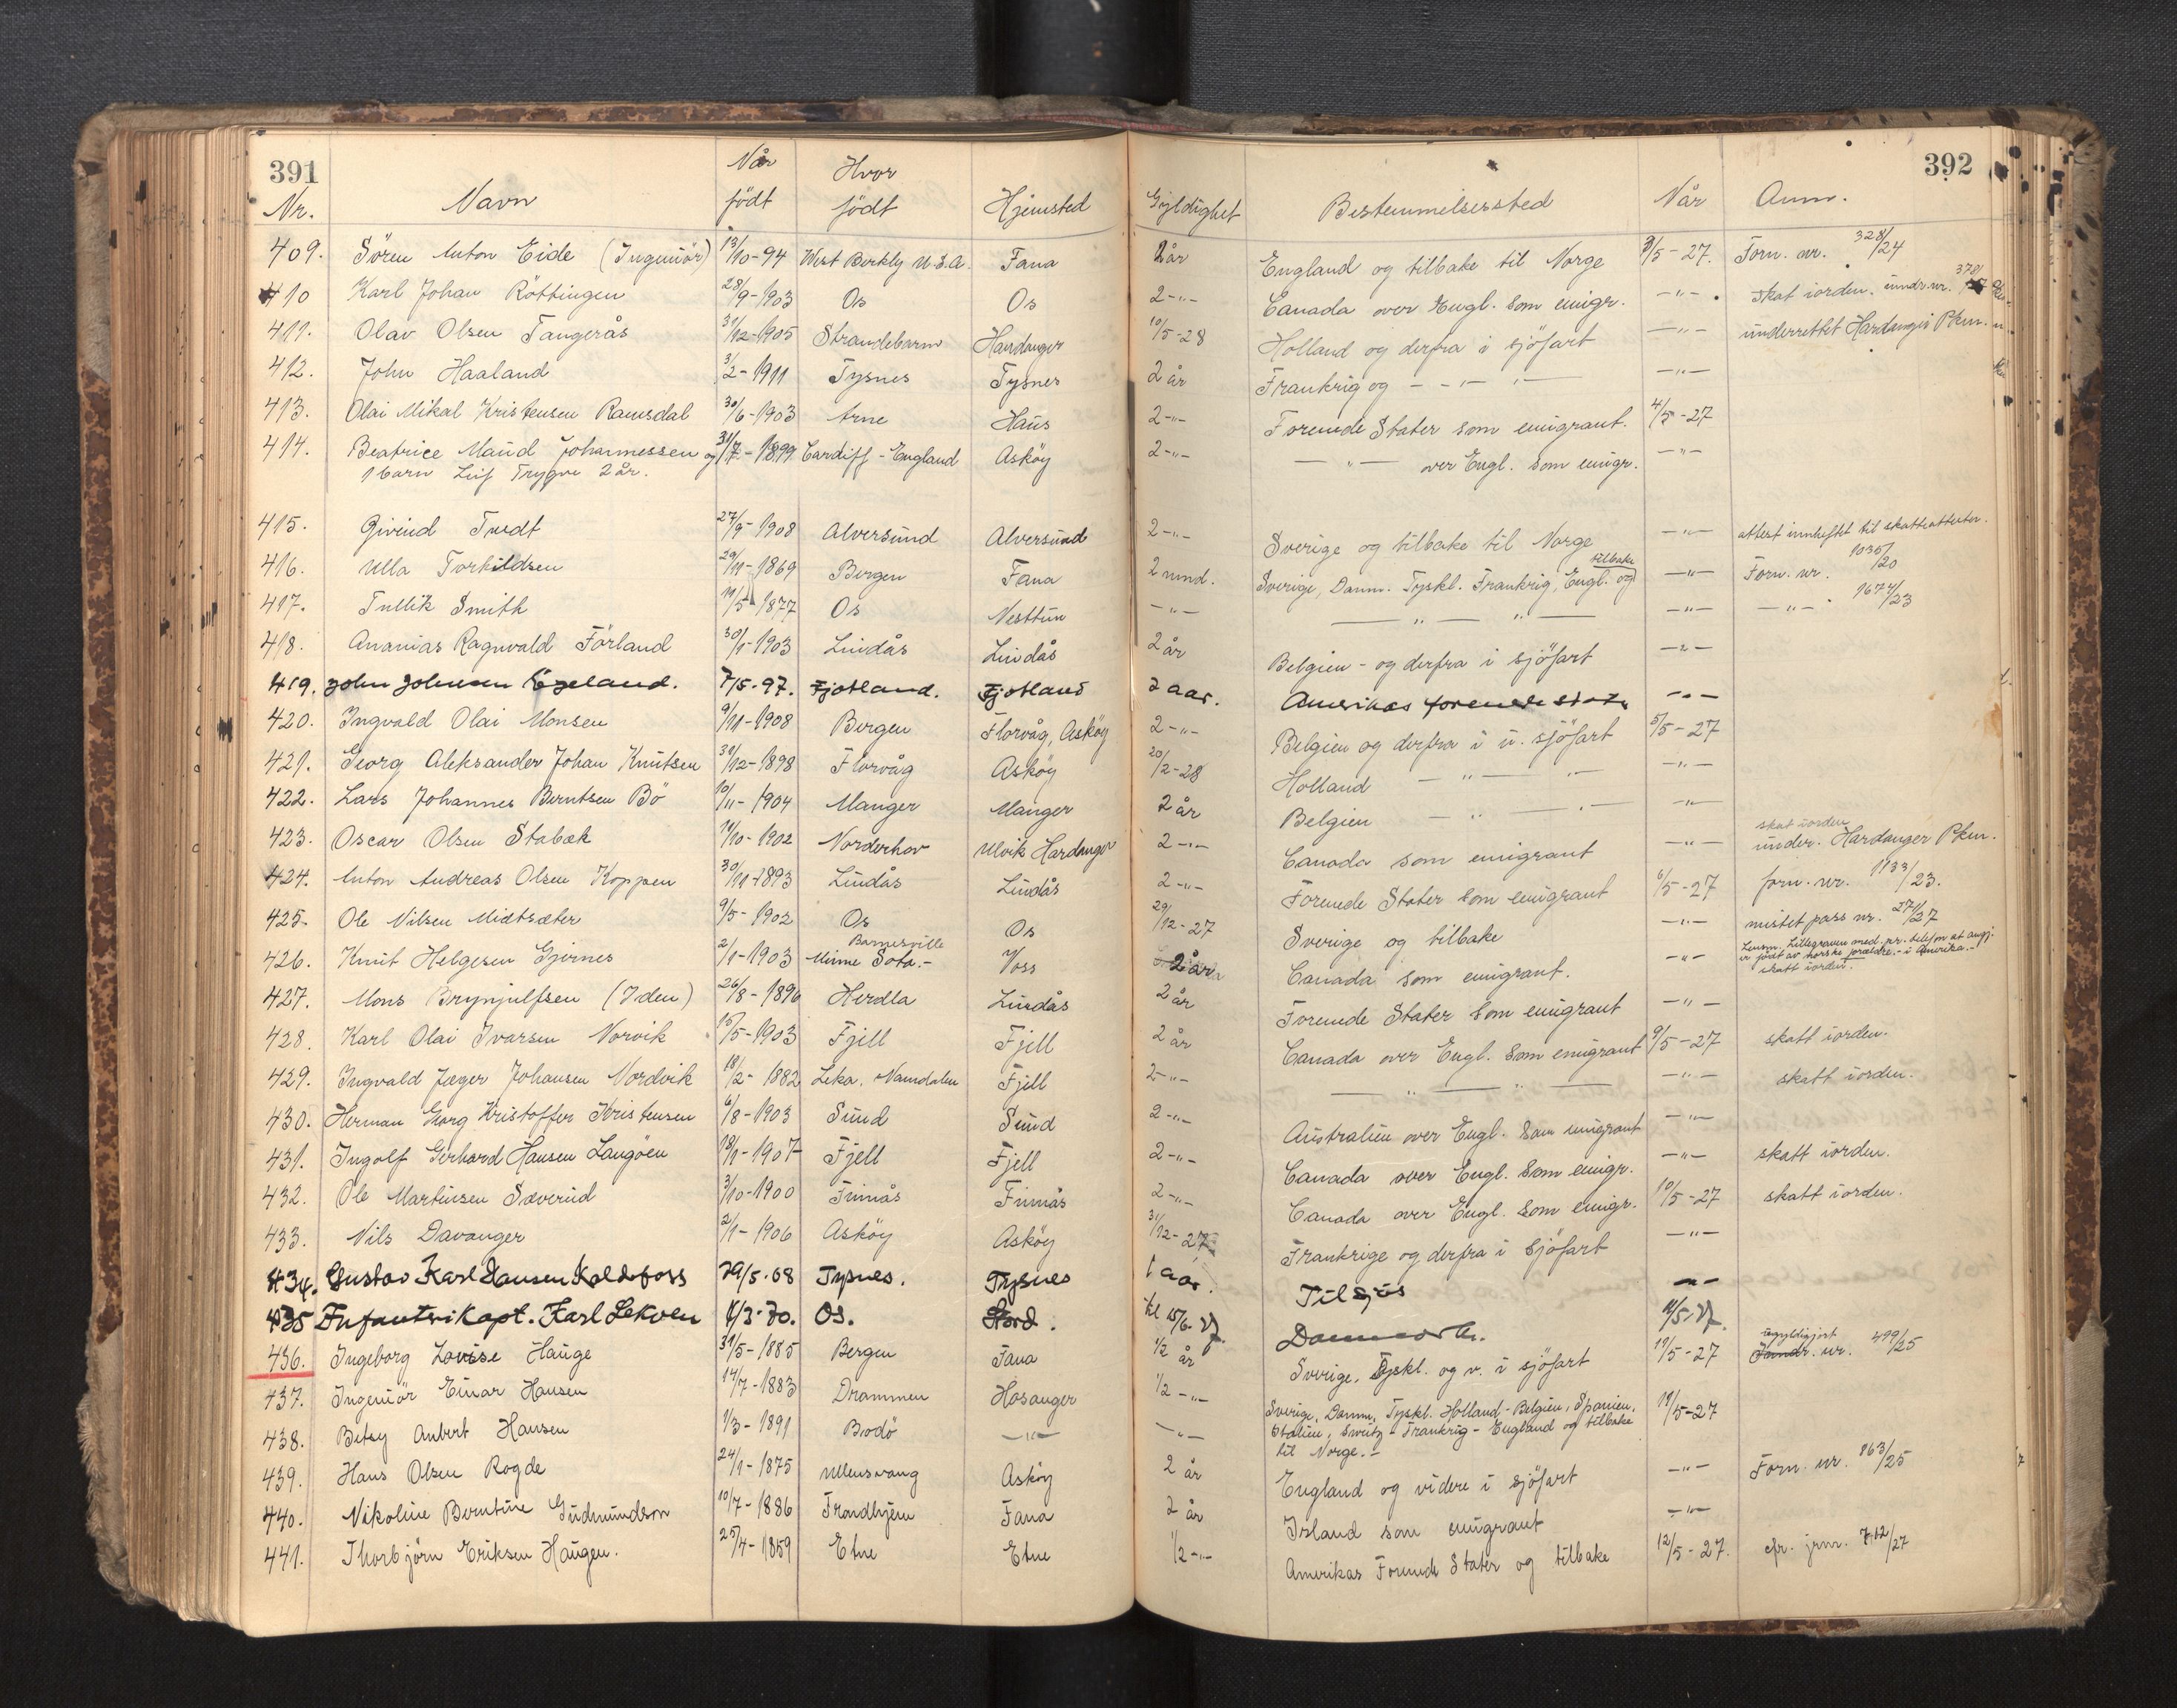 391
392
Nr. Navn Når født Hvor født Hjemsted Gyldighet Bestemmelsessted Når Anm.
409. Sören Anton Eide (Ingeniör) 13/10-94 West Berkly U.S.A. Fana 2 år England og tilbake til Norge 3/5-27. Forn. nr. 328/24
410 Karl Johan Röttingen 28/9-1903 Os Os 2-"- Canada over Engl. som emigr. -"- Skat iorden. undr. nr.
411. Olav Olsen Tangerås 31/12-1905 Strandebarm Hardanger 10/5-28 Holland og derfra i sjöfart -"- underrettet Hardanger Pkm.
412. John Haaland 3/2-1911 Tysnes Tysnes 2 år Frankrig og - -"- "- -"-
413. Olai Mikal Kristensen Ramsdal 30/6-1903 Arne Haus 2-"- Forenede Stater som emigrant. 4/5-27
414. Beatrice Maud Johannessen og 31/7-1899 Cardiff - England Asköy 2-"- -"- over Engl. som emigr. -"-
1 barn Leif Trygve 2 år.
415. Eivind Tvedt 27/9-1908 Alversund Alversund 2-"- Sverige og tilbake til Norge -"- attest innheftet til skatteattester.
416. Ulla Torkildsen 29/11-1869 Bergen Fana 2 mnd. Sverige, Danm. Tyskl. Frankrig, Engl. og tilbake -"- Forn. nr. 1035/20
417. Tullik Smith 11/5-1877 Os Nesttun -"- -"- "- -"- -"- 1674/23
418. Ananias Ragnvald Förland 30/1-1903 Lindås Lindås 2 år Belgien - og derfra i sjöfart -"-
419. John Johnsen Egeland. 7/5-97. Fjotland. Fjotland 2 aar. Amerikas forenede stater -"-
420. Ingvald Olai Monsen 9/11-1908 Bergen Florvåg, Asköy 2-"- Belgien og derfra i u. sjöfart 5/5-27
421. Georg Aleksander Johan Knutsen 30/12-1898 Florvåg Asköy 20/2-28 Holland -"- "- -"-
422. Lars Johannes Berntsen Bö 10/11-1904 Manger Manger 2 år Belgien -"- "- -"-
423. Oscar Olsen Stabæk 11/10-1902 Norderhov Ulvik Hardanger 2-"- Canada som emigrant -"- skat iorden under. Hardanger Pkm.
424. Anton Andreas Olsen Koppen 30/11-1893 Lindås Lindås 2-"- Forenede Stater som emigrant 6/5-27 forn. nr. 1133/23.
425. Ole Nilsen Midtsæter 9/5-1902 Os Os 29/12-27 Sverige og tilbake -"- mistet pass nr. 271/27
426. Knut Helgesen Gjernes 2/1-1903 Barnesville Minne Sota.- Voss 2 år Canada som emigrant. -"- Lensm. Lillegraven med. pr. telefon at angj. er födt av norske foreldre.- i Amerika.- skatt iorden.
427. Mons Brynjulfsen (Iden) 26/8-1896 Herdla Lindås 2 år Forenede Stater som emigrant -"-
428. Karl Olai Ivarsen Norvik 15/5-1903 Fjell Fjell 2 år Canada over Engl. som emigrant 9/5-27 skatt iorden.
429. Ingvald Jæger Johansen Nordvik 18/2-1882 Leka, Namdalen Fjell 2-"- -"- "- -"- skatt iorden.
430. Herman Georg Kristoffer Kristensen 6/8-1903 Sund Sund 2-"- Australien over Engl. som emigrant -"-
431. Ingolf Gerhard Hansen Langöen 18/1-1907 Fjell Fjell 2-"- Canada over Engl. som emigr. -"- skatt iorden.
432. Ole Martinsen Sæverud 3/10-1900 Finnås Finnås 2-"- Canada over Engl. som emigr. 10/5-27 skatt iorden.
433. Nils Davanger 2/1-1906 Asköy Asköy 31/12-27 Frankrige og derfra i sjöfart -"-
434. Gustav Karl Hansen Koldefoss 29/5-68 Tysnes. Tysnes 1 aar. Tilsjös -"-
435 Infanterikapt. Karl Lekven 4/3-70. Os. Stord. til 15/6-27. Danmark. 11/5-27.
436. Ingeborg Lovise Hauge 31/5-1885 Bergen Fana 1/2 år Sverige, Tyskl. og v. i sjöfart 11/5-27 ugyldigjort nr. 499/25
437. Ingeniör Einar Hansen 14/7-1883 Drammen Hosanger 1/2-"- Sverige, Danm, Tyskl. Holland - Belgien, Spanien, 11/5-27
438. Betsy Aubert Hansen 1/3-1891 Bodö -"- -"- Italien, Sveitz - Frankrig - England og tilbake
til Norge.-
439. Hans Olsen Rogde 24/1-1875 Ullensvang Asköy 2 år England og videre i sjöfart -"- Forn. nr. 163/25
440. Nikoline Berntine Gudmundson 10/7-1886 Trondhjem Fana 2 år Island som emigrant -"-
441. Thorbjörn Eriksen Haugen. 25/4-1859 Etne Etne 1/2-"- Amerikas Forenede Stater og tilbake 12/5-27. cfr. jrn. 712/27